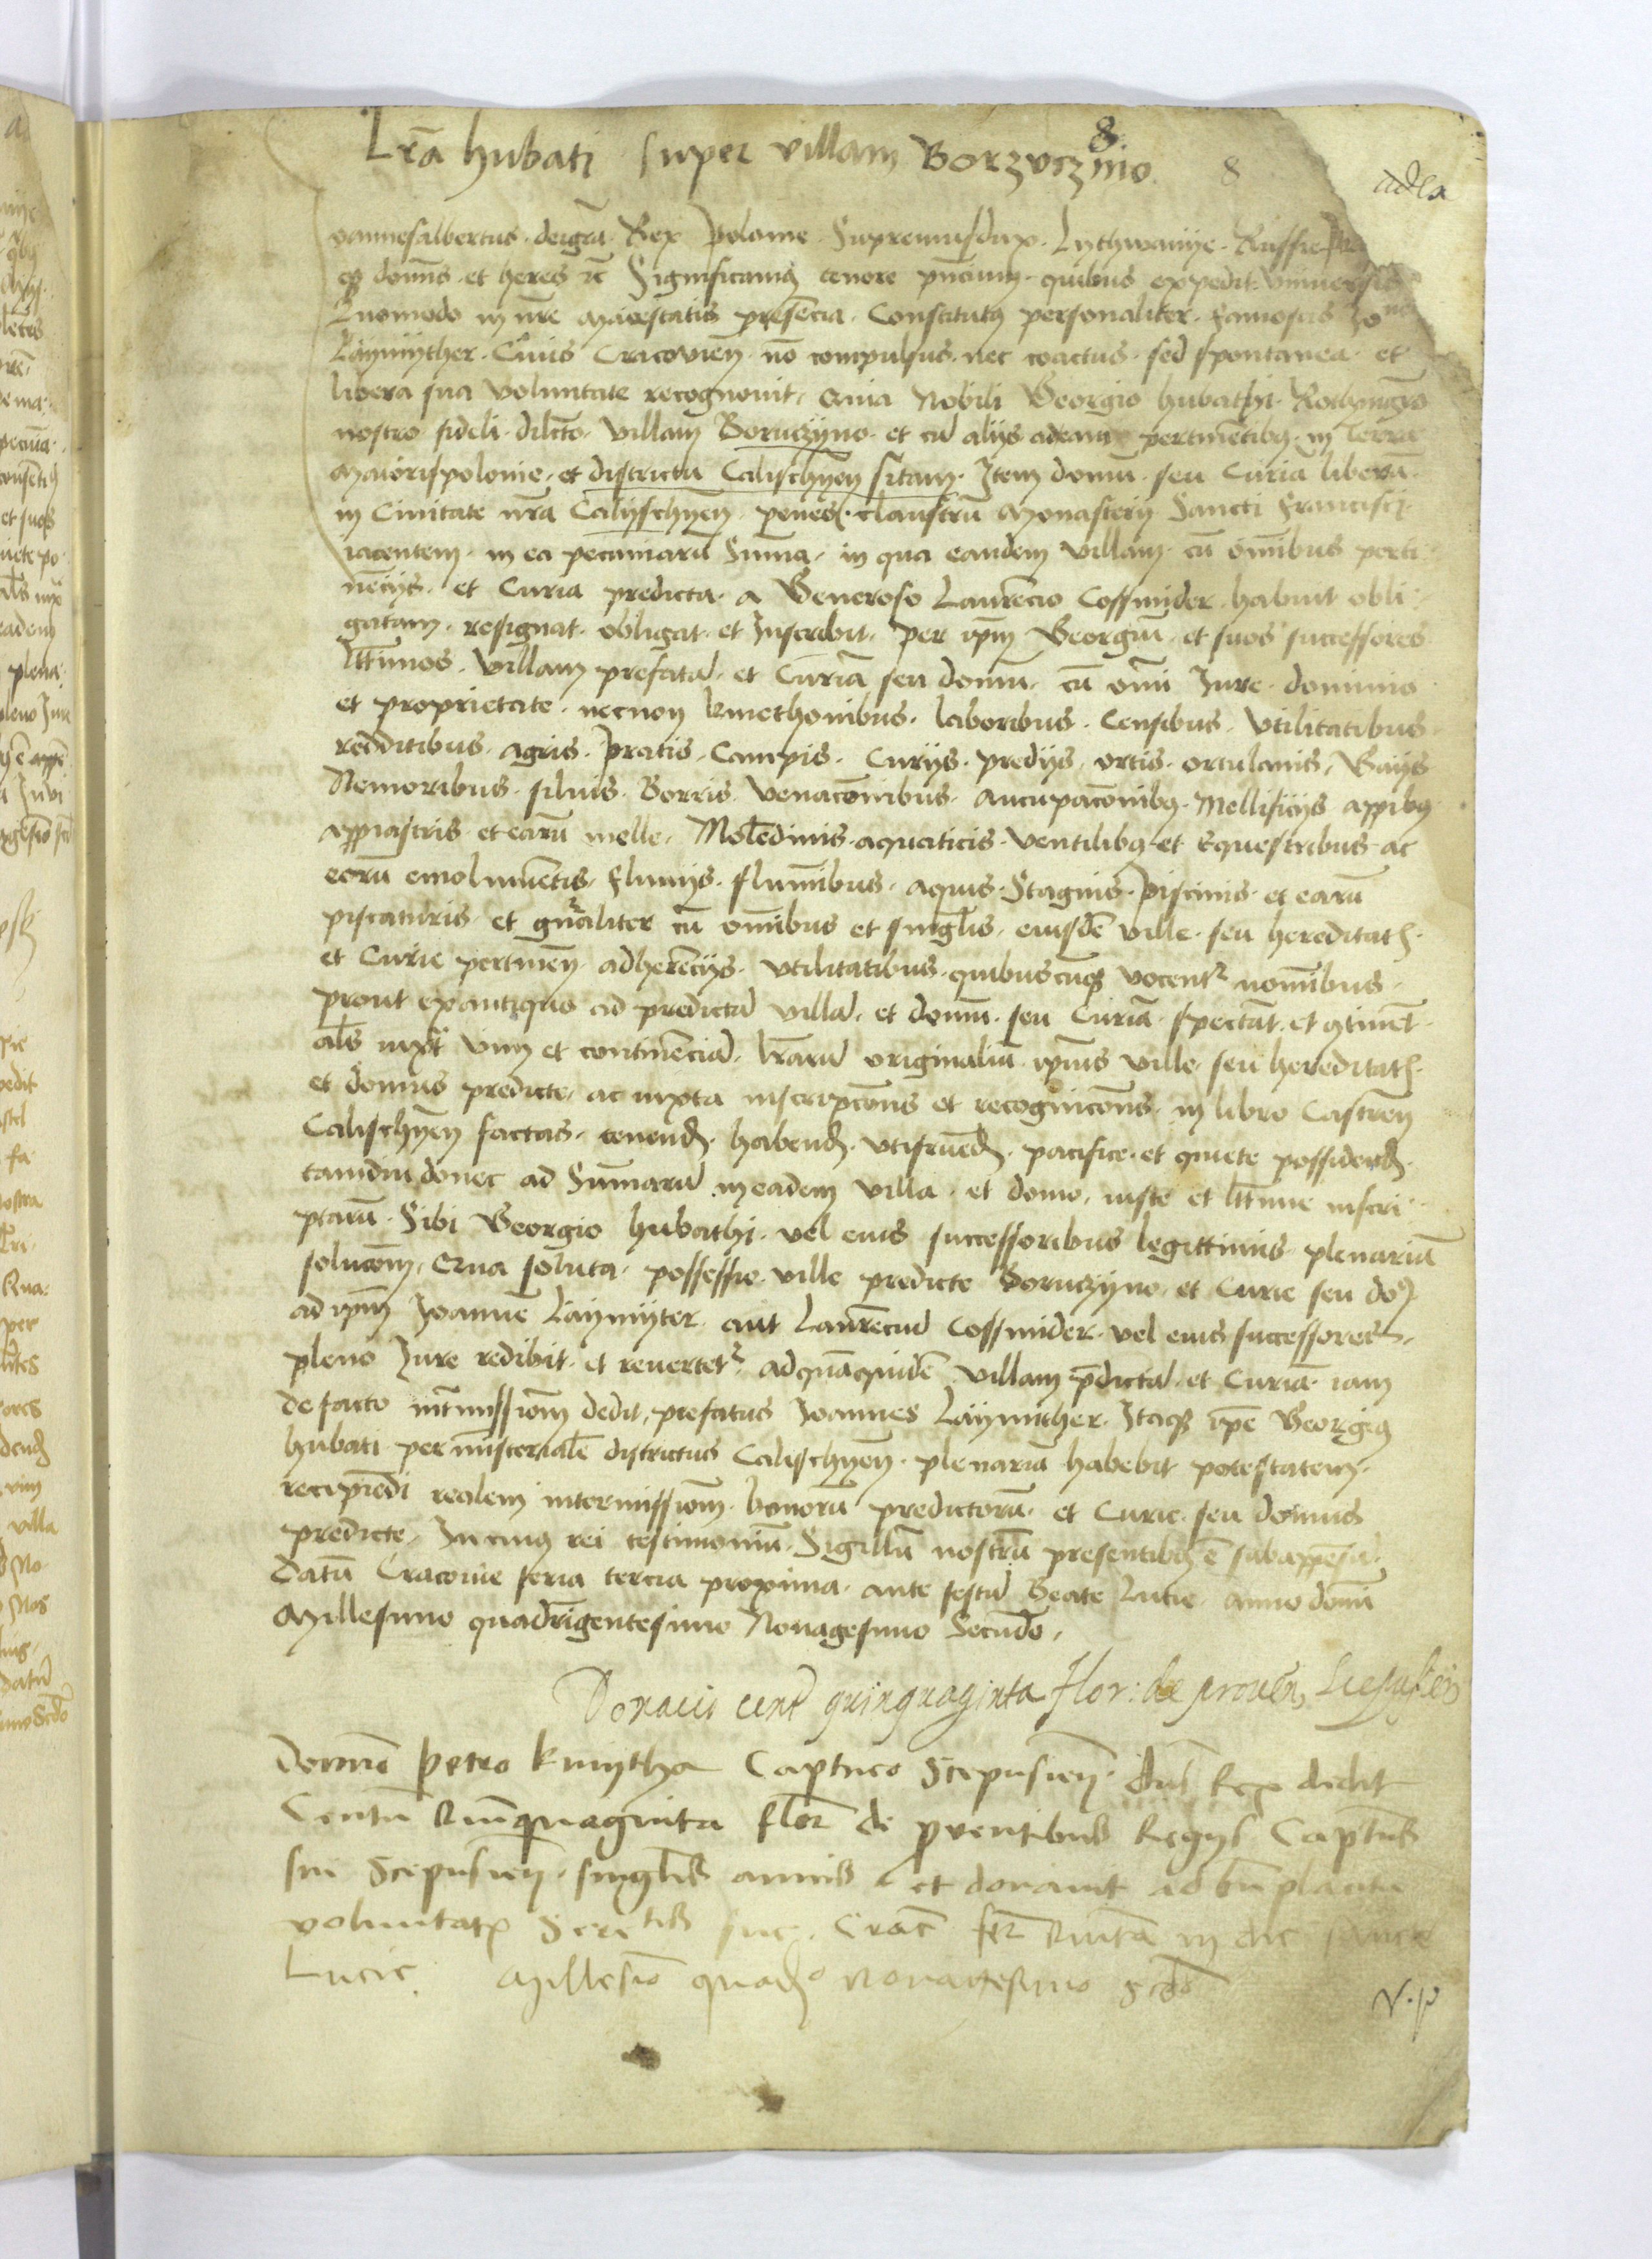 Lr̄a hubati super villam Borzvcznio
8
8
oannesalbertus deigr̄a Rex Polonie Supremusdux Lythwanije Russie
qз domn̄s et heres rc̄ Significamꝰ tenore pn̄cium quibus expedit vniversis
Quomodo in nr̄e Maiestatis presēcia Constitutꝰ personaliter famosus
Laymijther Civis Cracovień nō compulsus nec coactus sed spontanea et
libera sua voluntate recognovit Quia Nobili Georgio hubathi
nostro fideli dilcto villam Boruczyno et cū alijs adeam pertinētibꝰ in terra
Maiorispolonie et districtu Calischijeń sitam Item domū seu Curiā liberā
in Civitate nr̄a Calijschijeń penes claustrū Monasterij Sancti Francisci
iacentem in ea pecuniarū Sūma in qua eandem villam cū omībus perti
nēcijs et Curia predicta a Generoso Laurēcio Cossmider habuit obli
gatam resignat obligat et Inscribit per ip̄m Georgiū et suos successores
ltt̄imos villam prefatā et Curiā seu domū cū omī Iure dominio
et proprietate necnon kmethonibus laboribus Censibus Vtilitatibus
redditibus agris Pratis Campis Curijs predijs ortis ortulanis Gaijs
Nemoribus siluis Borris venacōnibus Aucupacōnibꝰ Mellificijs appibꝰ
appiastris et earū melle Molēdinis aquaticis ventilibꝰ et Equestribus ac
eorū emolumētis fluuijs flumībus aquis Stagnis Piscinis et earū
piscaturis et gn̄raliter cū omībus et singl̄is eiusdē ville seu hereditatꝭ
et Curie pertineń adherēcijs vtilitatibus quibuscūqз vocentʳ nomībus
prout exantiquo ad predictā villā et domū seu Curiā spectāt et ꝯtinēt
al̄s iuxt vim et continēciā lr̄arū originaliū ip̄ius ville seu hereditatꝭ
et domus predicte ac iuxta inscripcōns et recognicōns in libro Castreń
Calischijeń factas tenend̄ habend̄ vtifruēd̄ pacifice et quiete possidend̄
tamdiu donec ad Sūmarū ineadem villa et domo iuste et ltt̄ime inscri
ptarū Sibi Georgio hubathi vel eius successoribus legittimis plenariā
solucōm Qua soluta possessio ville predicte Boruczyno et Curie seu do
ad ip̄m Ioannē Laymijter aut Laurēciū Cossmider vel eius successores
pleno Iure redibit et reuertetʳ adquāquidē villam p̄dictā et Curiā iam
defacto intmissiōm dedit prefatus Ioannes Laijmither Itaqз ip̄e Georgiꝰ
hubati per misterialē districtus Calischijeń plenariā habebit potestatem
recipiēdi realem intermissiōm bonorū predictorū et Curie seu domus
predicte Incuiꝰ rei testimoniū Sigillū nostrū presentibꝰ ē subappēsū
Datū Cracovie feria tercia proxima ante festū Beate Lucie anno domī
Millesimo quadringentesimo Nonagesimo Secūdo
Donacio cent quinquaginta flor: de proven Scepusień
Domīo Petro kmytha Capitaneo Scepusień dn̄s Rex dedit
Centū Quīquaginta flor̄ de proventibus Regijs Capitaneatus
sui Scepusień singl̄is annis et donavit ad bn̄placitū
voluntatꝭ Sere tis sue Crac̄ fer̄ Quīta in die sancte
Lucie Millesīo quadꝰ nonagesimo scd̄o
V.p